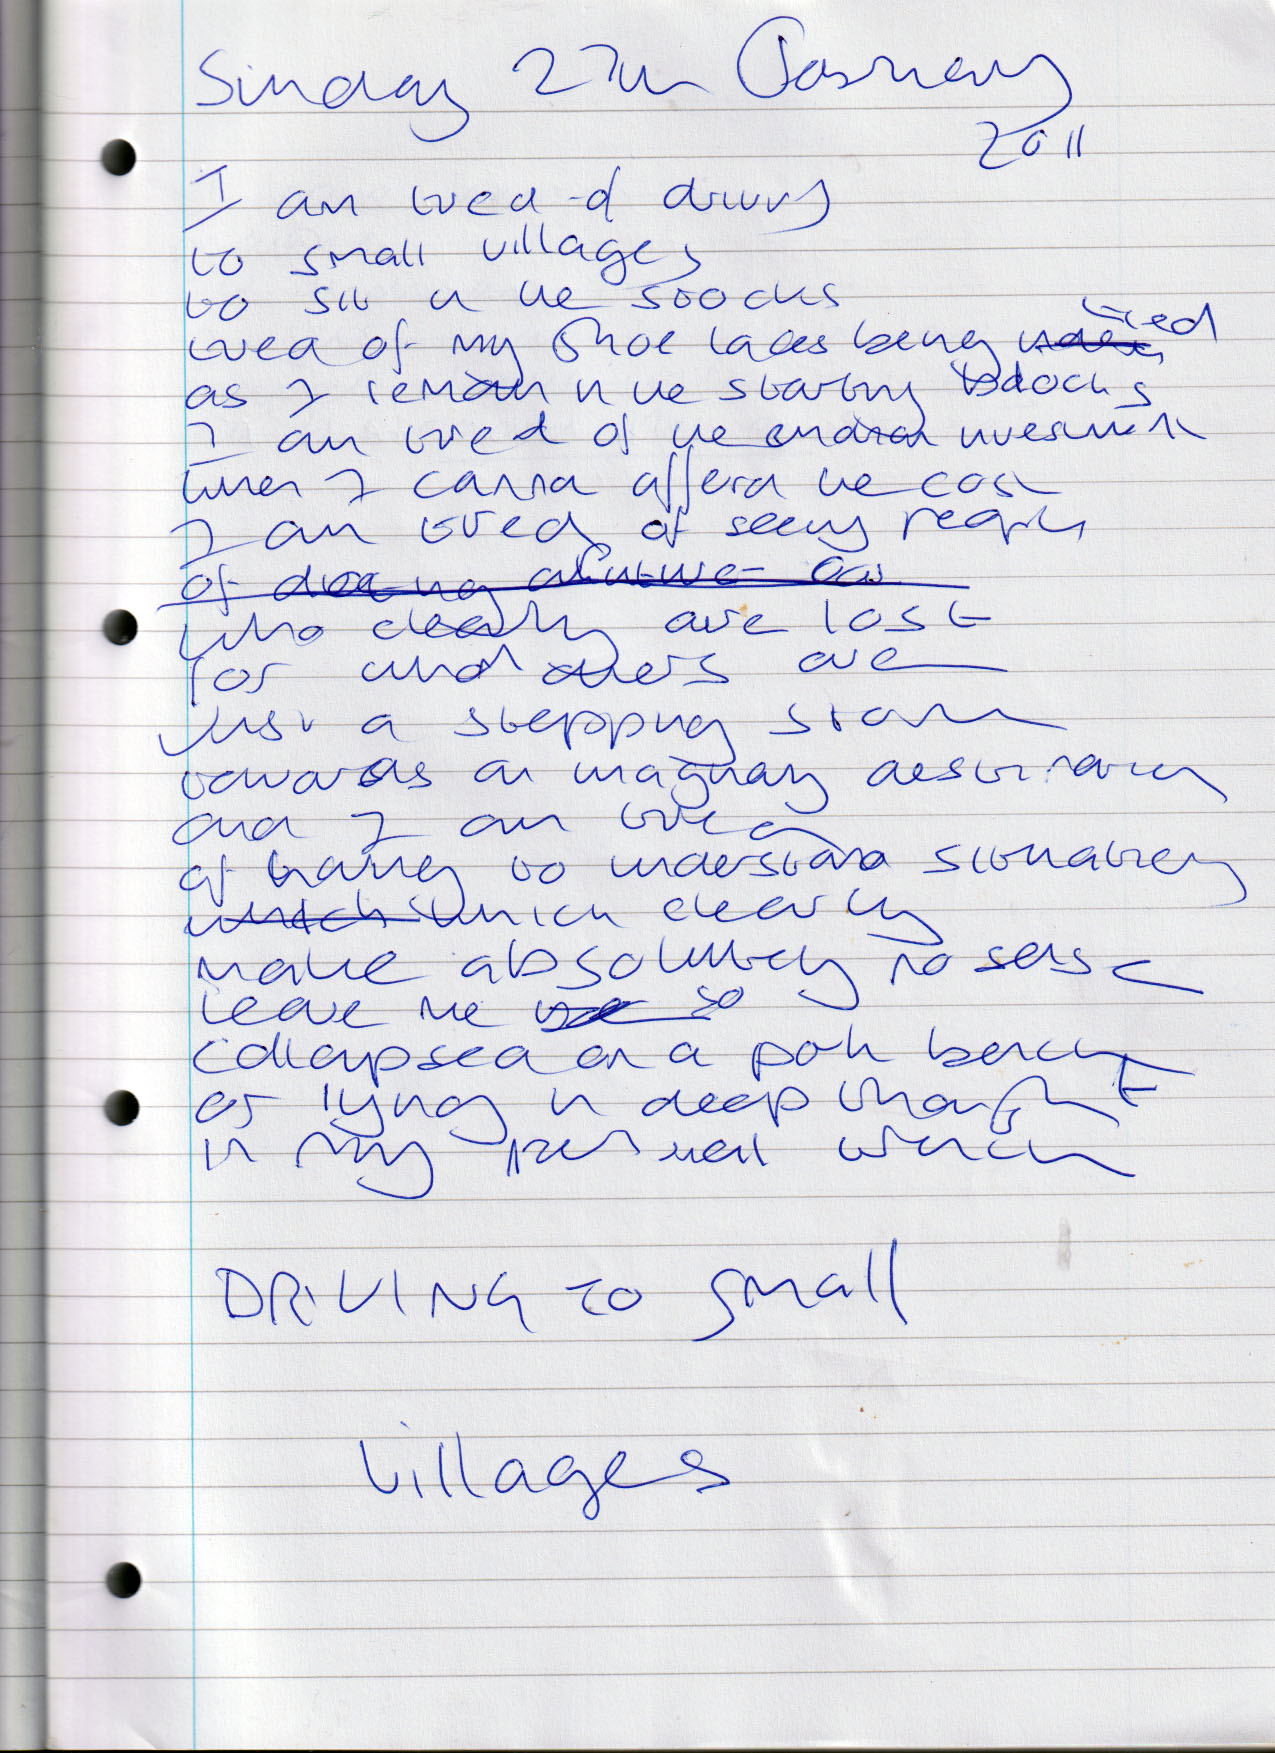 Sunday 27th February
2011
I am tired of driving
to small villages
to sit in the stocks
tired of my shoe laces being tied
as I remain in the starting blocks
I am tired of the investment
when I cannot afford the cost
I am tired of seeing people
of
who clearly are lost
for and others are
just a stepping stone
towards an imaginary destination
and I am tired
of trying to understand situations
which which clearly
make absolutely no sense
leave me so
collapsed on a park bench
or lying in deep thought
in my personal
DRIVING to small
Villages